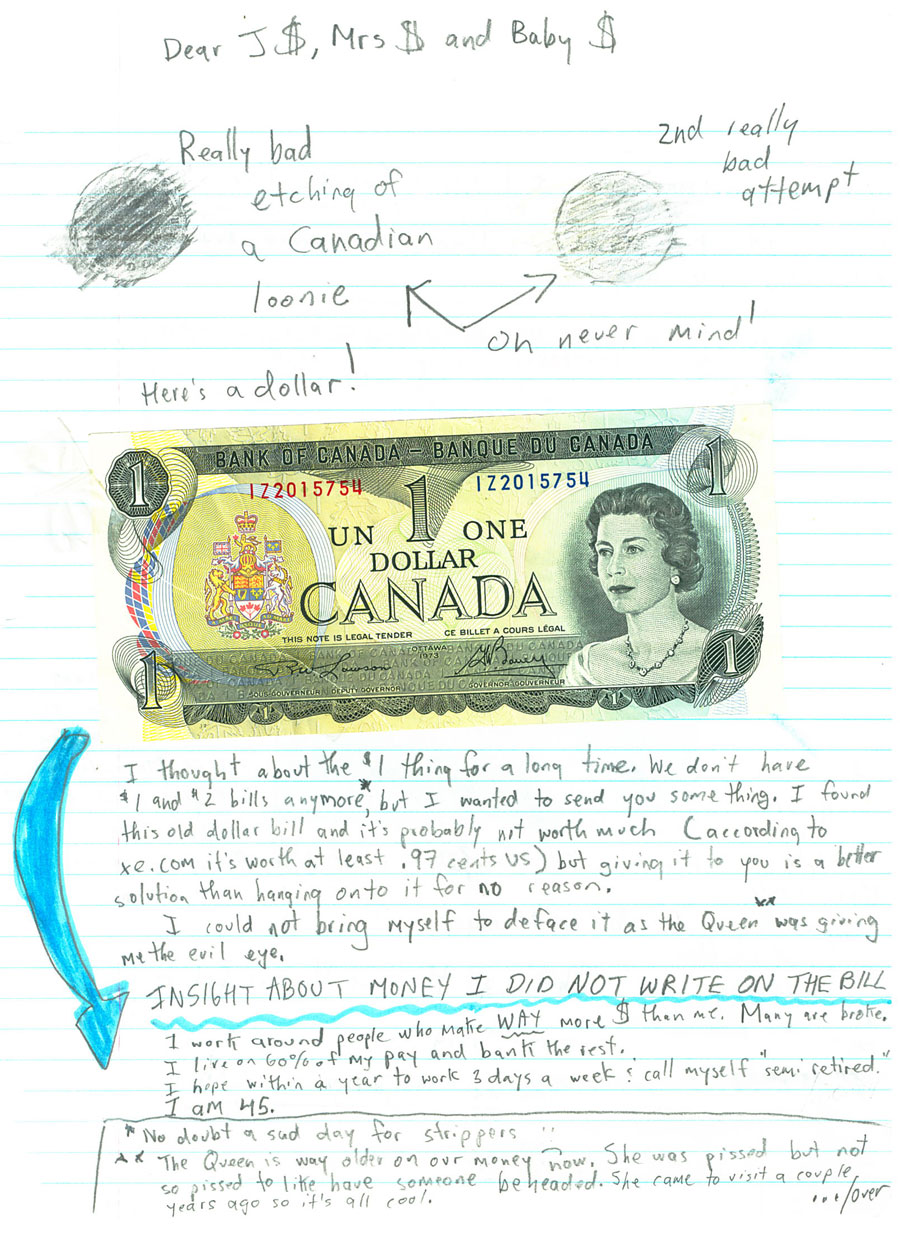 Dear J$, Mrs $ and Baby $
Really bad
etching of
a Canadian
loonie
2nd really
bad
attempt
Oh never mind!
Here's a dollar!
BANK OF CANADA – BANQUE DU CANADA
1
1
IZ2015754
1
IZ2015754
UN
ONE
DOLLAR
CANADA
THIS NOTE IS LEGAL TENDER
CE BILLET A COURS LÉGAL
OTTAWA
1973
SOUS-GOUVERNEUR DEPUTY GOVERNOR
GOVERNOR-GOUVERNEUR
1
1
1
1
I thought about the $1 thing for a long time. We don't have
$1 and $2 bills anymore*, but I wanted to send you something. I found
this old dollar bill and it's probably not worth much (according to
xe.com it's worth at least .97 cents US) but giving it to you is a better
solution than hanging onto it for no reason.
I could not bring myself to deface it as the Queen** was giving
me the evil eye.
INSIGHT ABOUT MONEY I DID NOT WRITE ON THE BILL
I work around people who make WAY more $ than me. Many are broke.
I live on 60% of my pay and bank the rest.
I hope within a year to work 3 days a week & call myself "semi retired."
I am 45.
* No doubt a sad day for strippers
** The Queen is way older on our money now. She was pissed but not
so pissed to like have someone beheaded. She came to visit a couple
years ago so it's all cool.
.../over